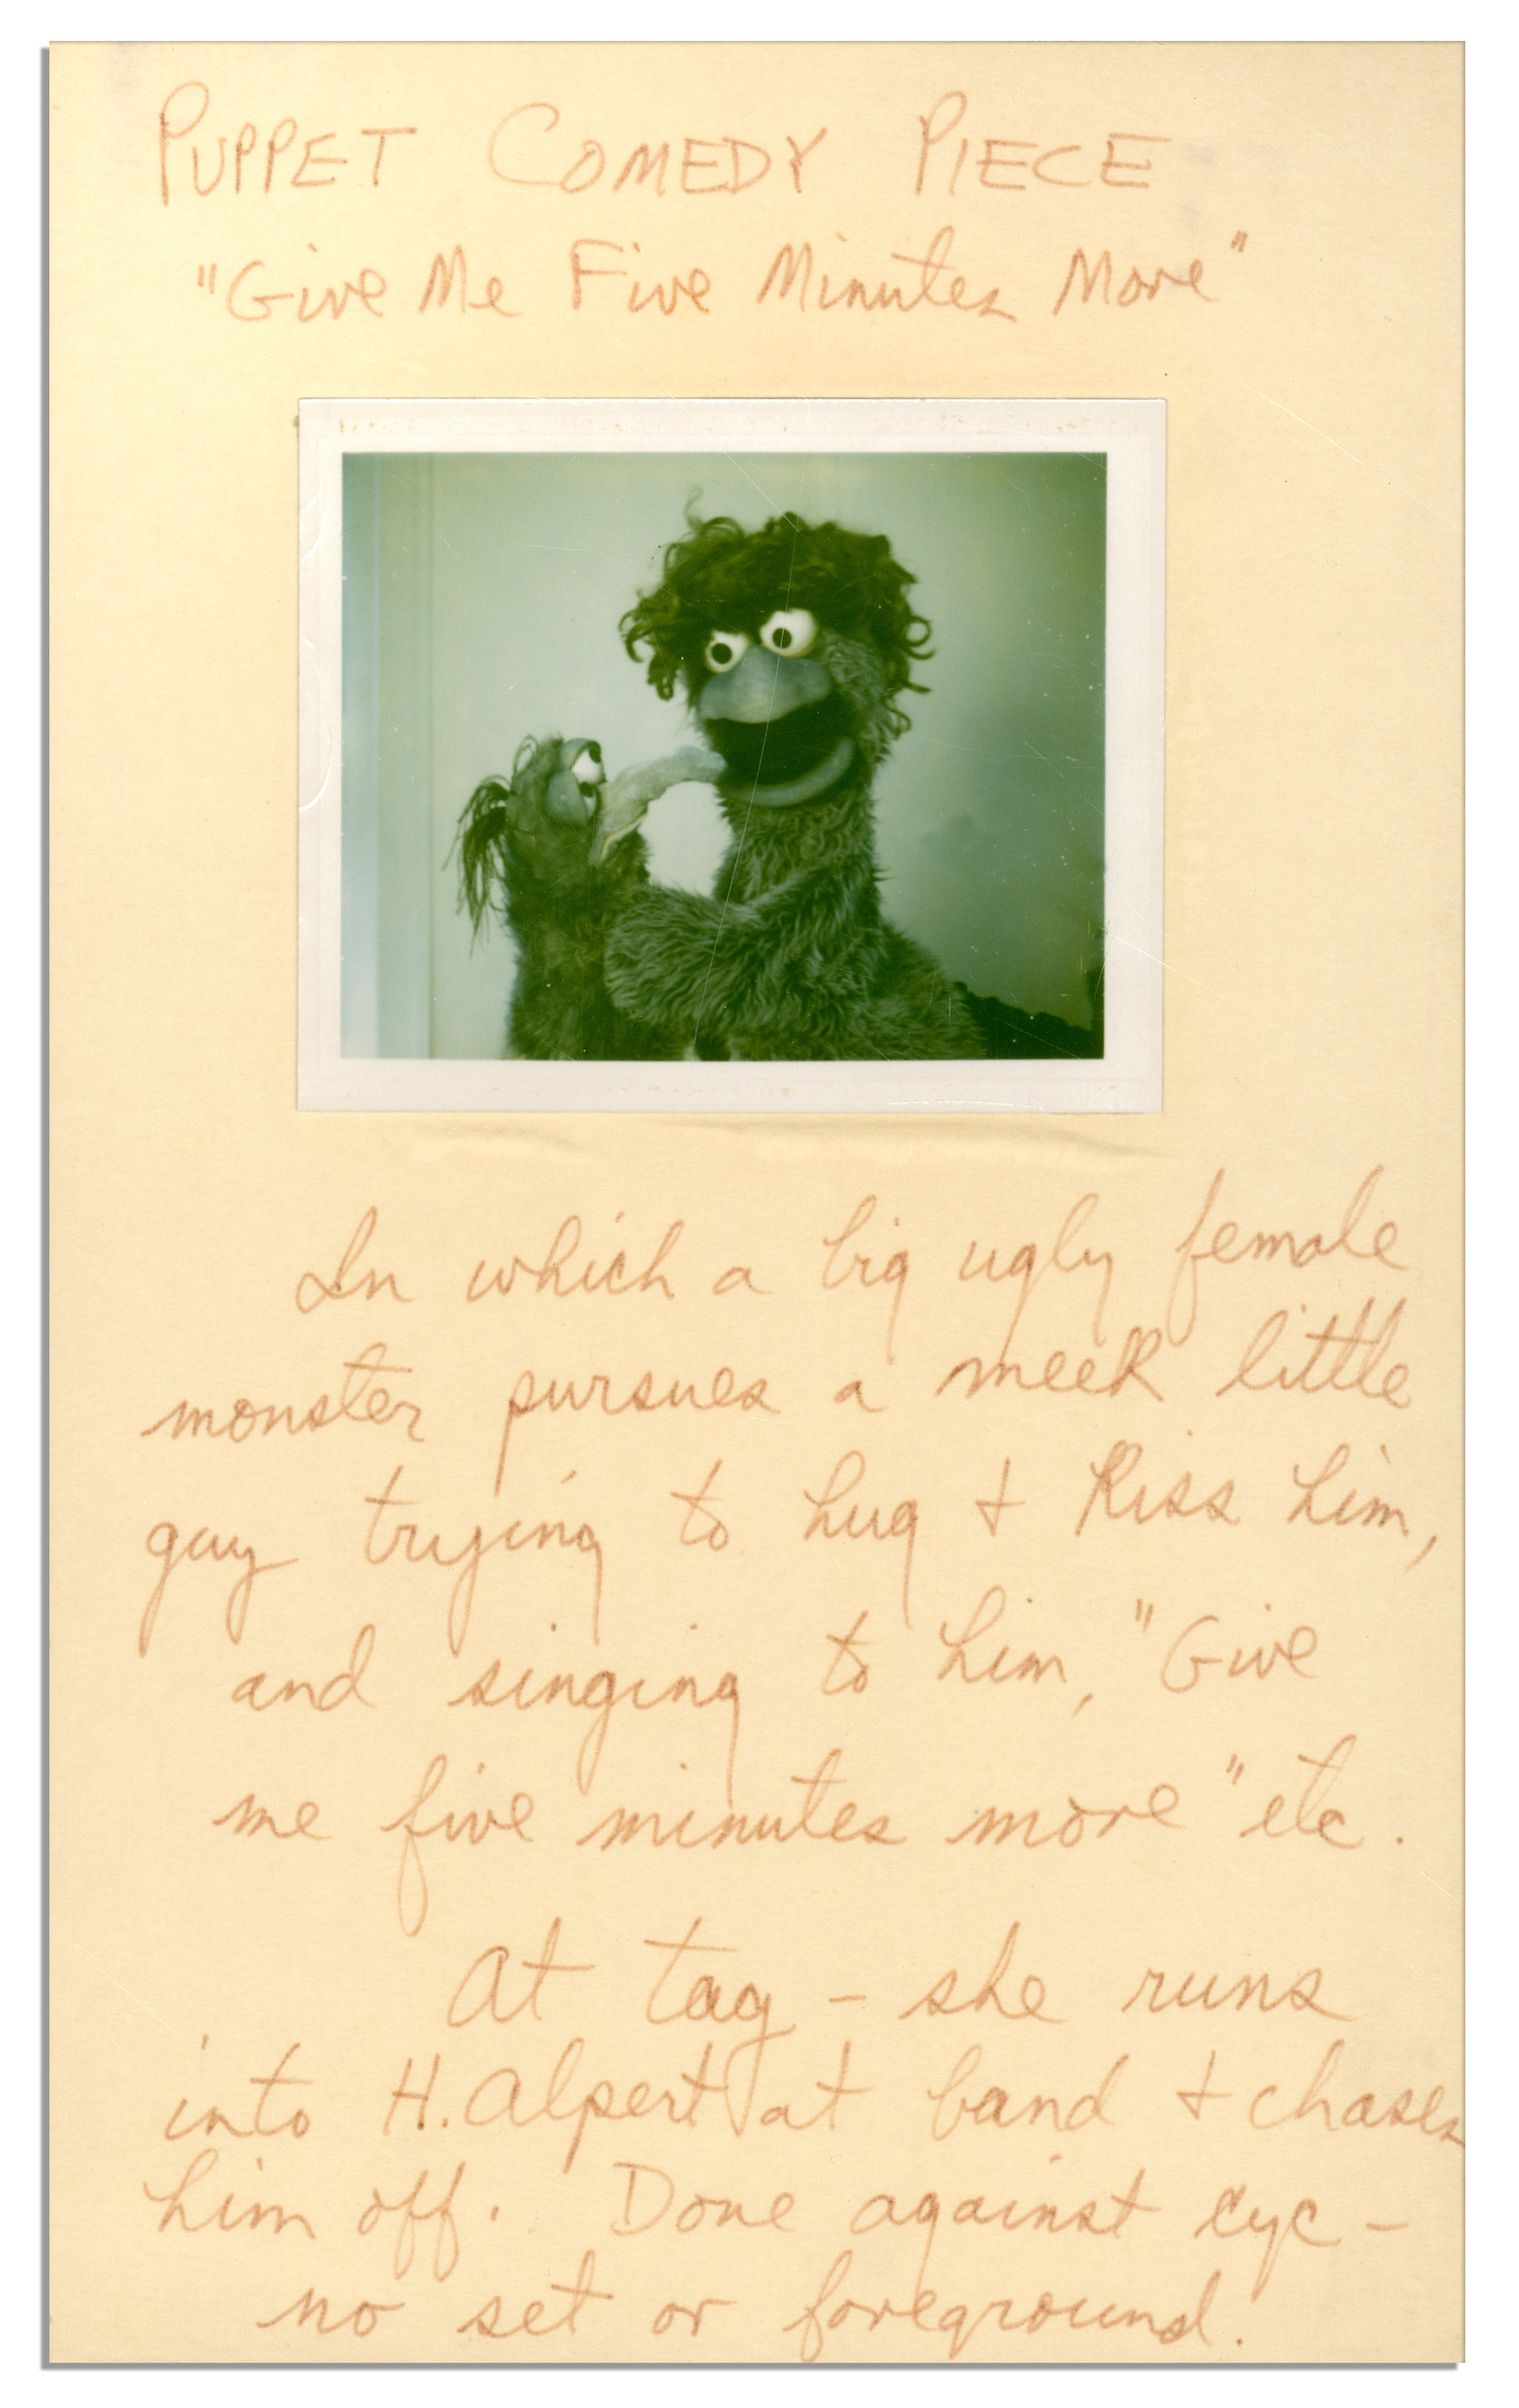 PUPPET COMEDY PIECE
"Give Me Five Minutes More"
In which a big ugly female
monster pursues a meek little
guy trying to hug + kiss him,
and singing to him, "Give
me five minutes more" etc.
At tag - she runs
into H. Alpert at band + chases
him off. Done against cyc -
no set or foreground.